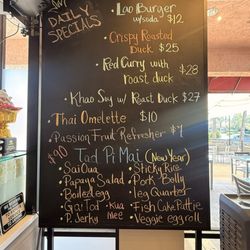 DAILY
SPECIALS
• Lao Burger
w/soda $12
• Crispy Roasted
Duck • $25
• Red Curry with
roast duck $28
• Khao Soy w/ Roast Duck $27
• Thai Omelette • $10
• Passion Fruit Refresher • $7
$90
Tad Pi Mai (New Year)
• Sai Oua
• Papaya Salad
• Boiled egg
• P. Jerky
• Kua Mee
• Sticky Rice
• Pork Belly
• Leg Quarter
• Fish Cake Pattie
• Veggie eggroll